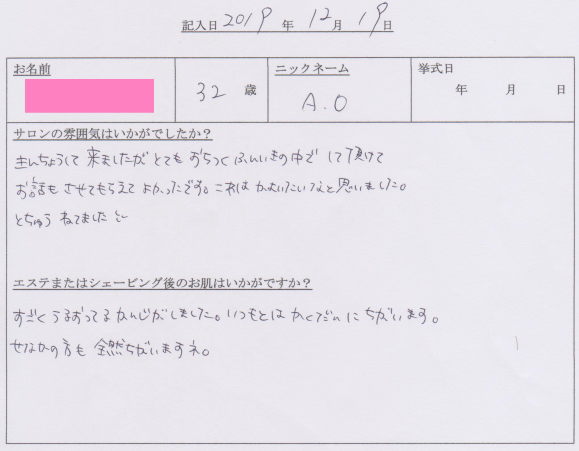 記入日 2019 年 12 月 19 日
お名前
32 歳
ニックネーム
A.O
挙式日
年 月 日
サロンの雰囲気はいかがでしたか?
きんちょうして来ましたがとてもおちつくふんいきの中でして頂けて
お話もさせてもらえてよかったです。これはかよいたいなと思いました。
とちゅうねてました
エステまたはシェービング後のお肌はいかがですか?
すごくうるおってるかんじがしました。いつもとはかくだんにちがいます。
せなかの方も全然ちがいますネ。